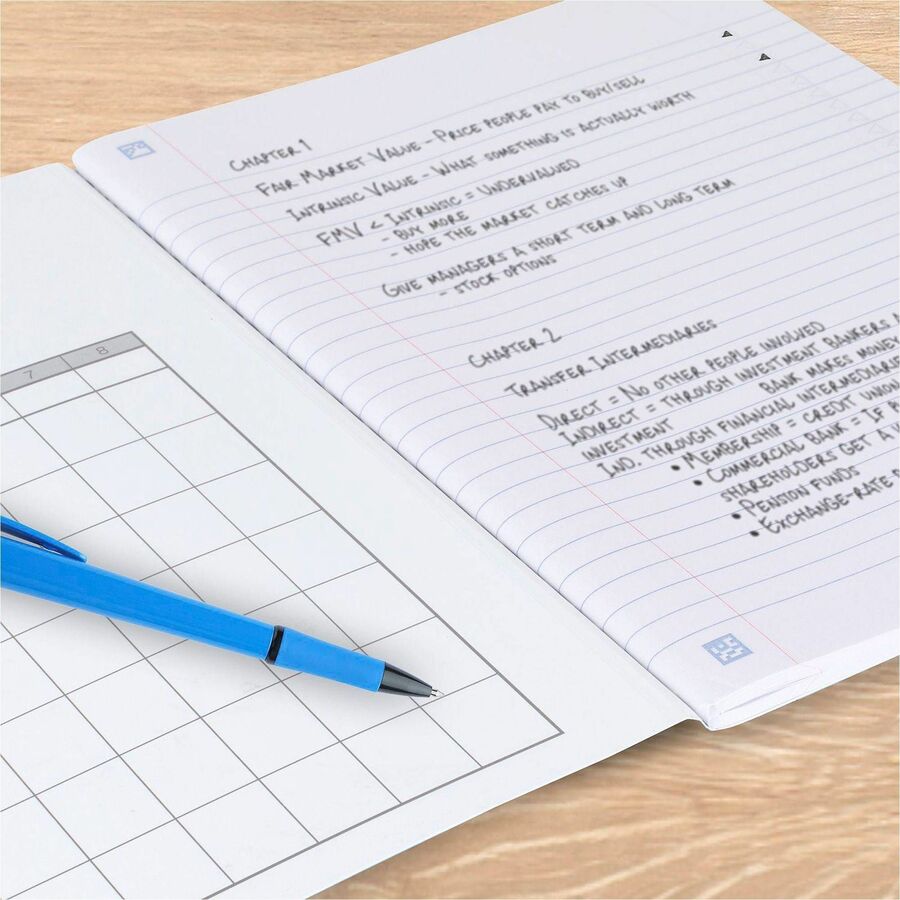 7 8
CHAPTER 1
FAIR MARKET VALUE - PRICE PEOPLE PAY TO BUY/SELL
INTRINSIC VALUE - WHAT SOMETHING IS ACTUALLY WORTH
FMV < INTRINSIC = UNDERVALUED
- BUY MORE
- HOPE THE MARKET CATCHES UP
GIVE MANAGERS A SHORT TERM AND LONG TERM
- STOCK OPTIONS
CHAPTER 2
TRANSFER INTERMEDIARIES
DIRECT = NO OTHER PEOPLE INVOLVED
INDIRECT = THROUGH INVESTMENT BANKERS
INVESTMENT BANK MAKES MONEY
IND. THROUGH FINANCIAL INTERMEDIARIES
• MEMBERSHIP = CREDIT UNION
• COMMERCIAL BANK = IF
SHAREHOLDERS GET A
• PENSION FUNDS
• EXCHANGE-RATE-